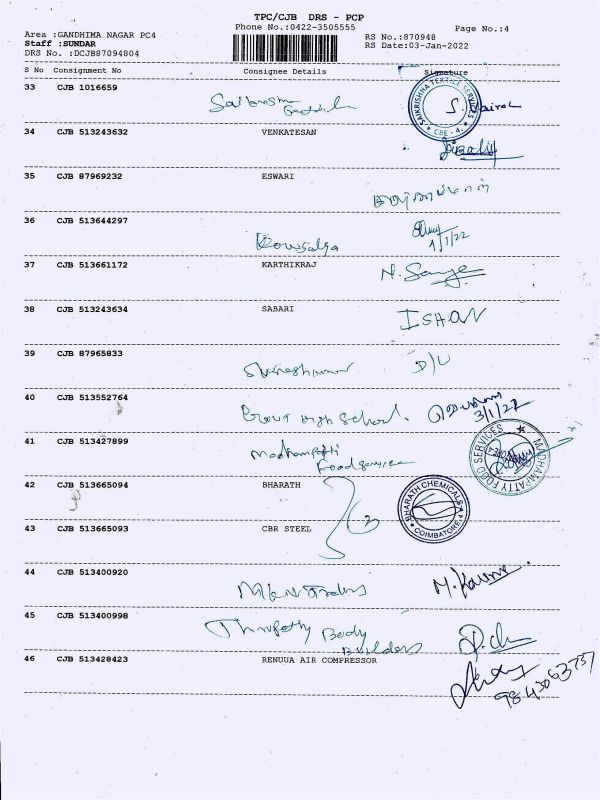 TPC/CJB DRS - PCP
Phone No.:0422-3505555
Page No.:4
Area :GANDHIMA NAGAR PC4
RS No.:870948
Staff :SUNDAR
RS Date:03-Jan-2022
DRS No. :DCJB87094804
S No Consignment No Consignee Details Signature
33 CJB 1016659
SAIKRISHNA TEXTILE SERVICES
CBE - 4.
34 CJB 513243632 VENKATESAN
35 CJB 87969232 ESWARI
36 CJB 513644297
Kousalya 1/1/22
37 CJB 513661172 KARTHIKRAJ
38 CJB 513243634 SABARI
ISHAN
39 CJB 87965833
Sureshkumar D/L
40 CJB 513552764
High School. 3/1/22
41 CJB 513427899
Madhampatti
Food Service
MADHAMPATTY FOOD SERVICES
42 CJB 513665094 BHARATH
BHARATH CHEMICALS
COIMBATORE-4
43 CJB 513665093 CBR STEEL
44 CJB 513400920
Traders
45 CJB 513400998
Thirupathy Body
Builders
46 CJB 513428423 RENUUA AIR COMPRESSOR
9843063737